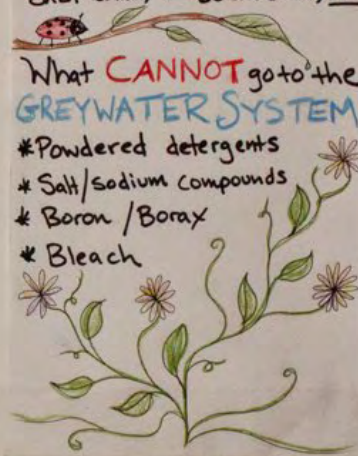 What CANNOT go to the
GREYWATER SYSTEM
*Powdered detergents
* Salt/Sodium compounds
* Boron /Borax
* Bleach